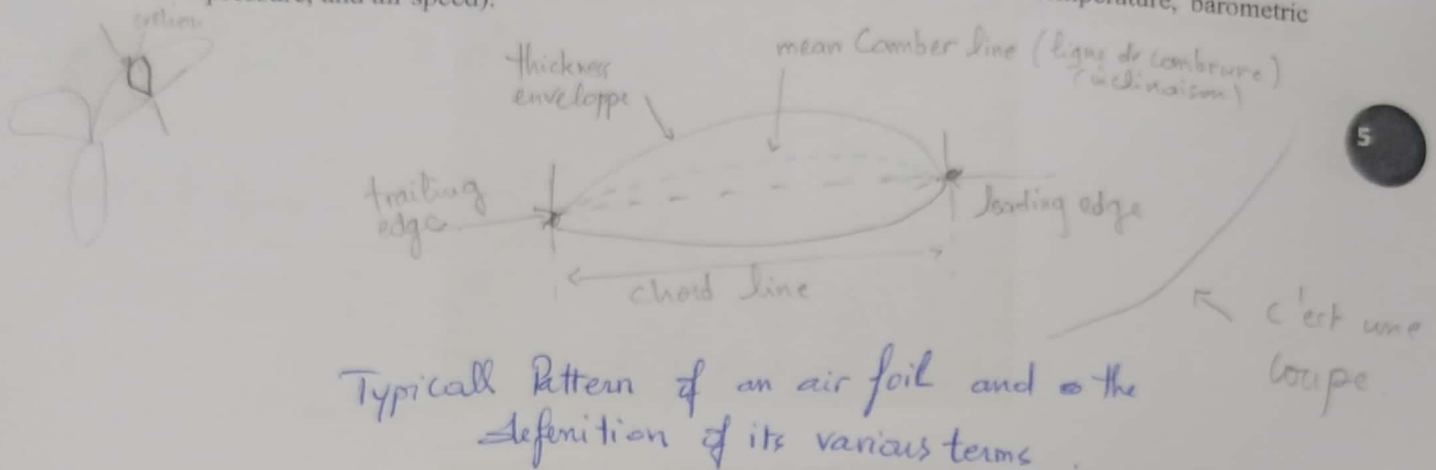 and air speed).
barometric
thickness
enveloppe
mean Camber line (ligne de cambrure)
(inclinaison)
5
trailing
edge
leading edge
chord line
c'est une
coupe
Typicall Pattern of an air foil and the
defenition of its various terms.